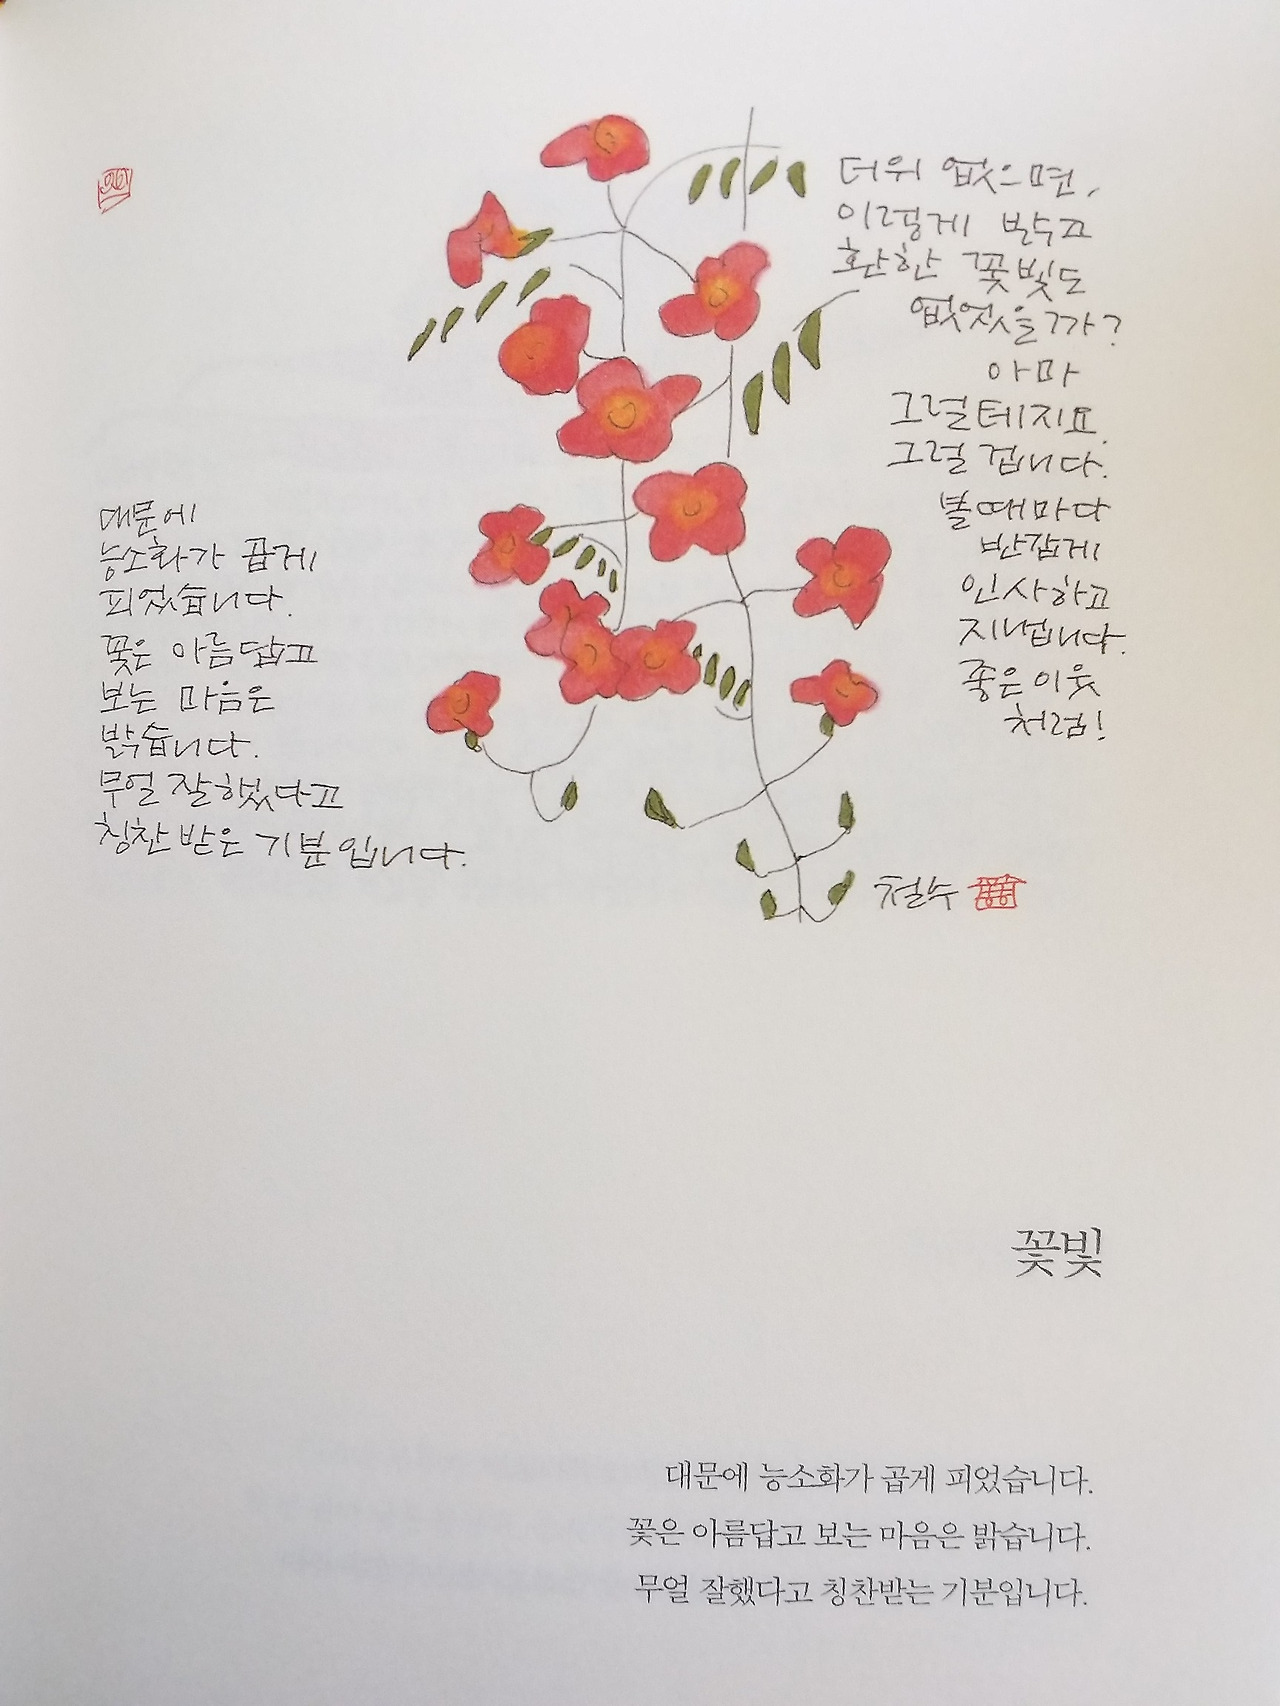 대문에
능소화가 곱게
피었습니다.
꽃은 아름답고
보는 마음은
밝습니다.
무얼 잘했다고
칭찬 받은 기분입니다.
더위 없으면,
이렇게 밝고
환한 꽃빛도
없었을까?
아마
그럴테지요.
그럴 겁니다.
볼때마다
반갑게
인사하고
지냅니다.
좋은이웃
처럼!
철수
꽃빛
대문에 능소화가 곱게 피었습니다.
꽃은 아름답고 보는 마음은 밝습니다.
무얼 잘했다고 칭찬받는 기분입니다.